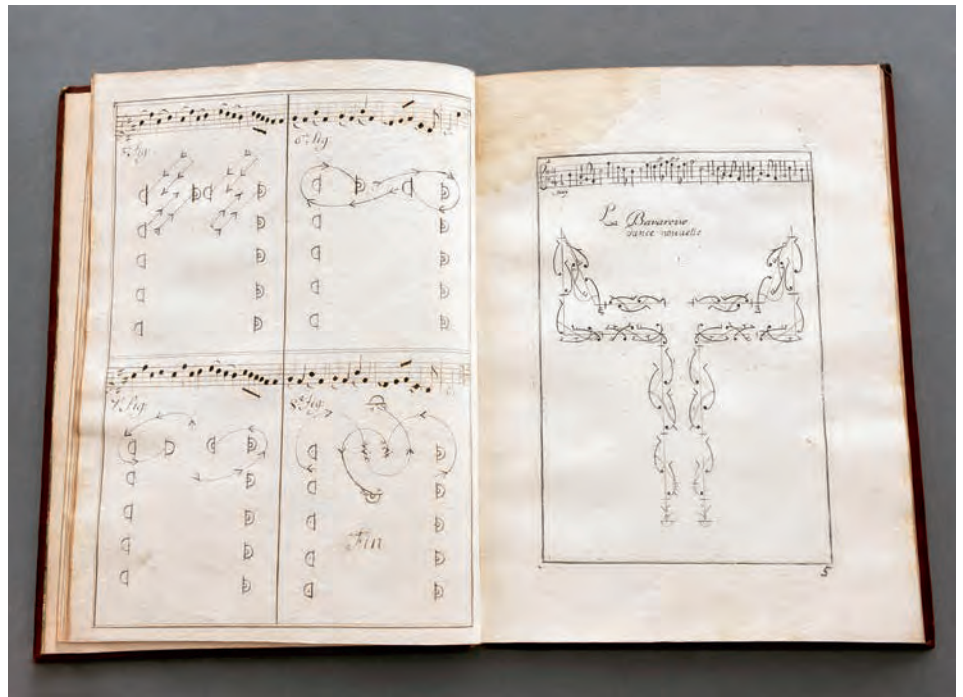 5.e fig.
6.e fig.
7.e fig.
8.e fig.
Fin
La Bavaroise
dance nouuelle
5